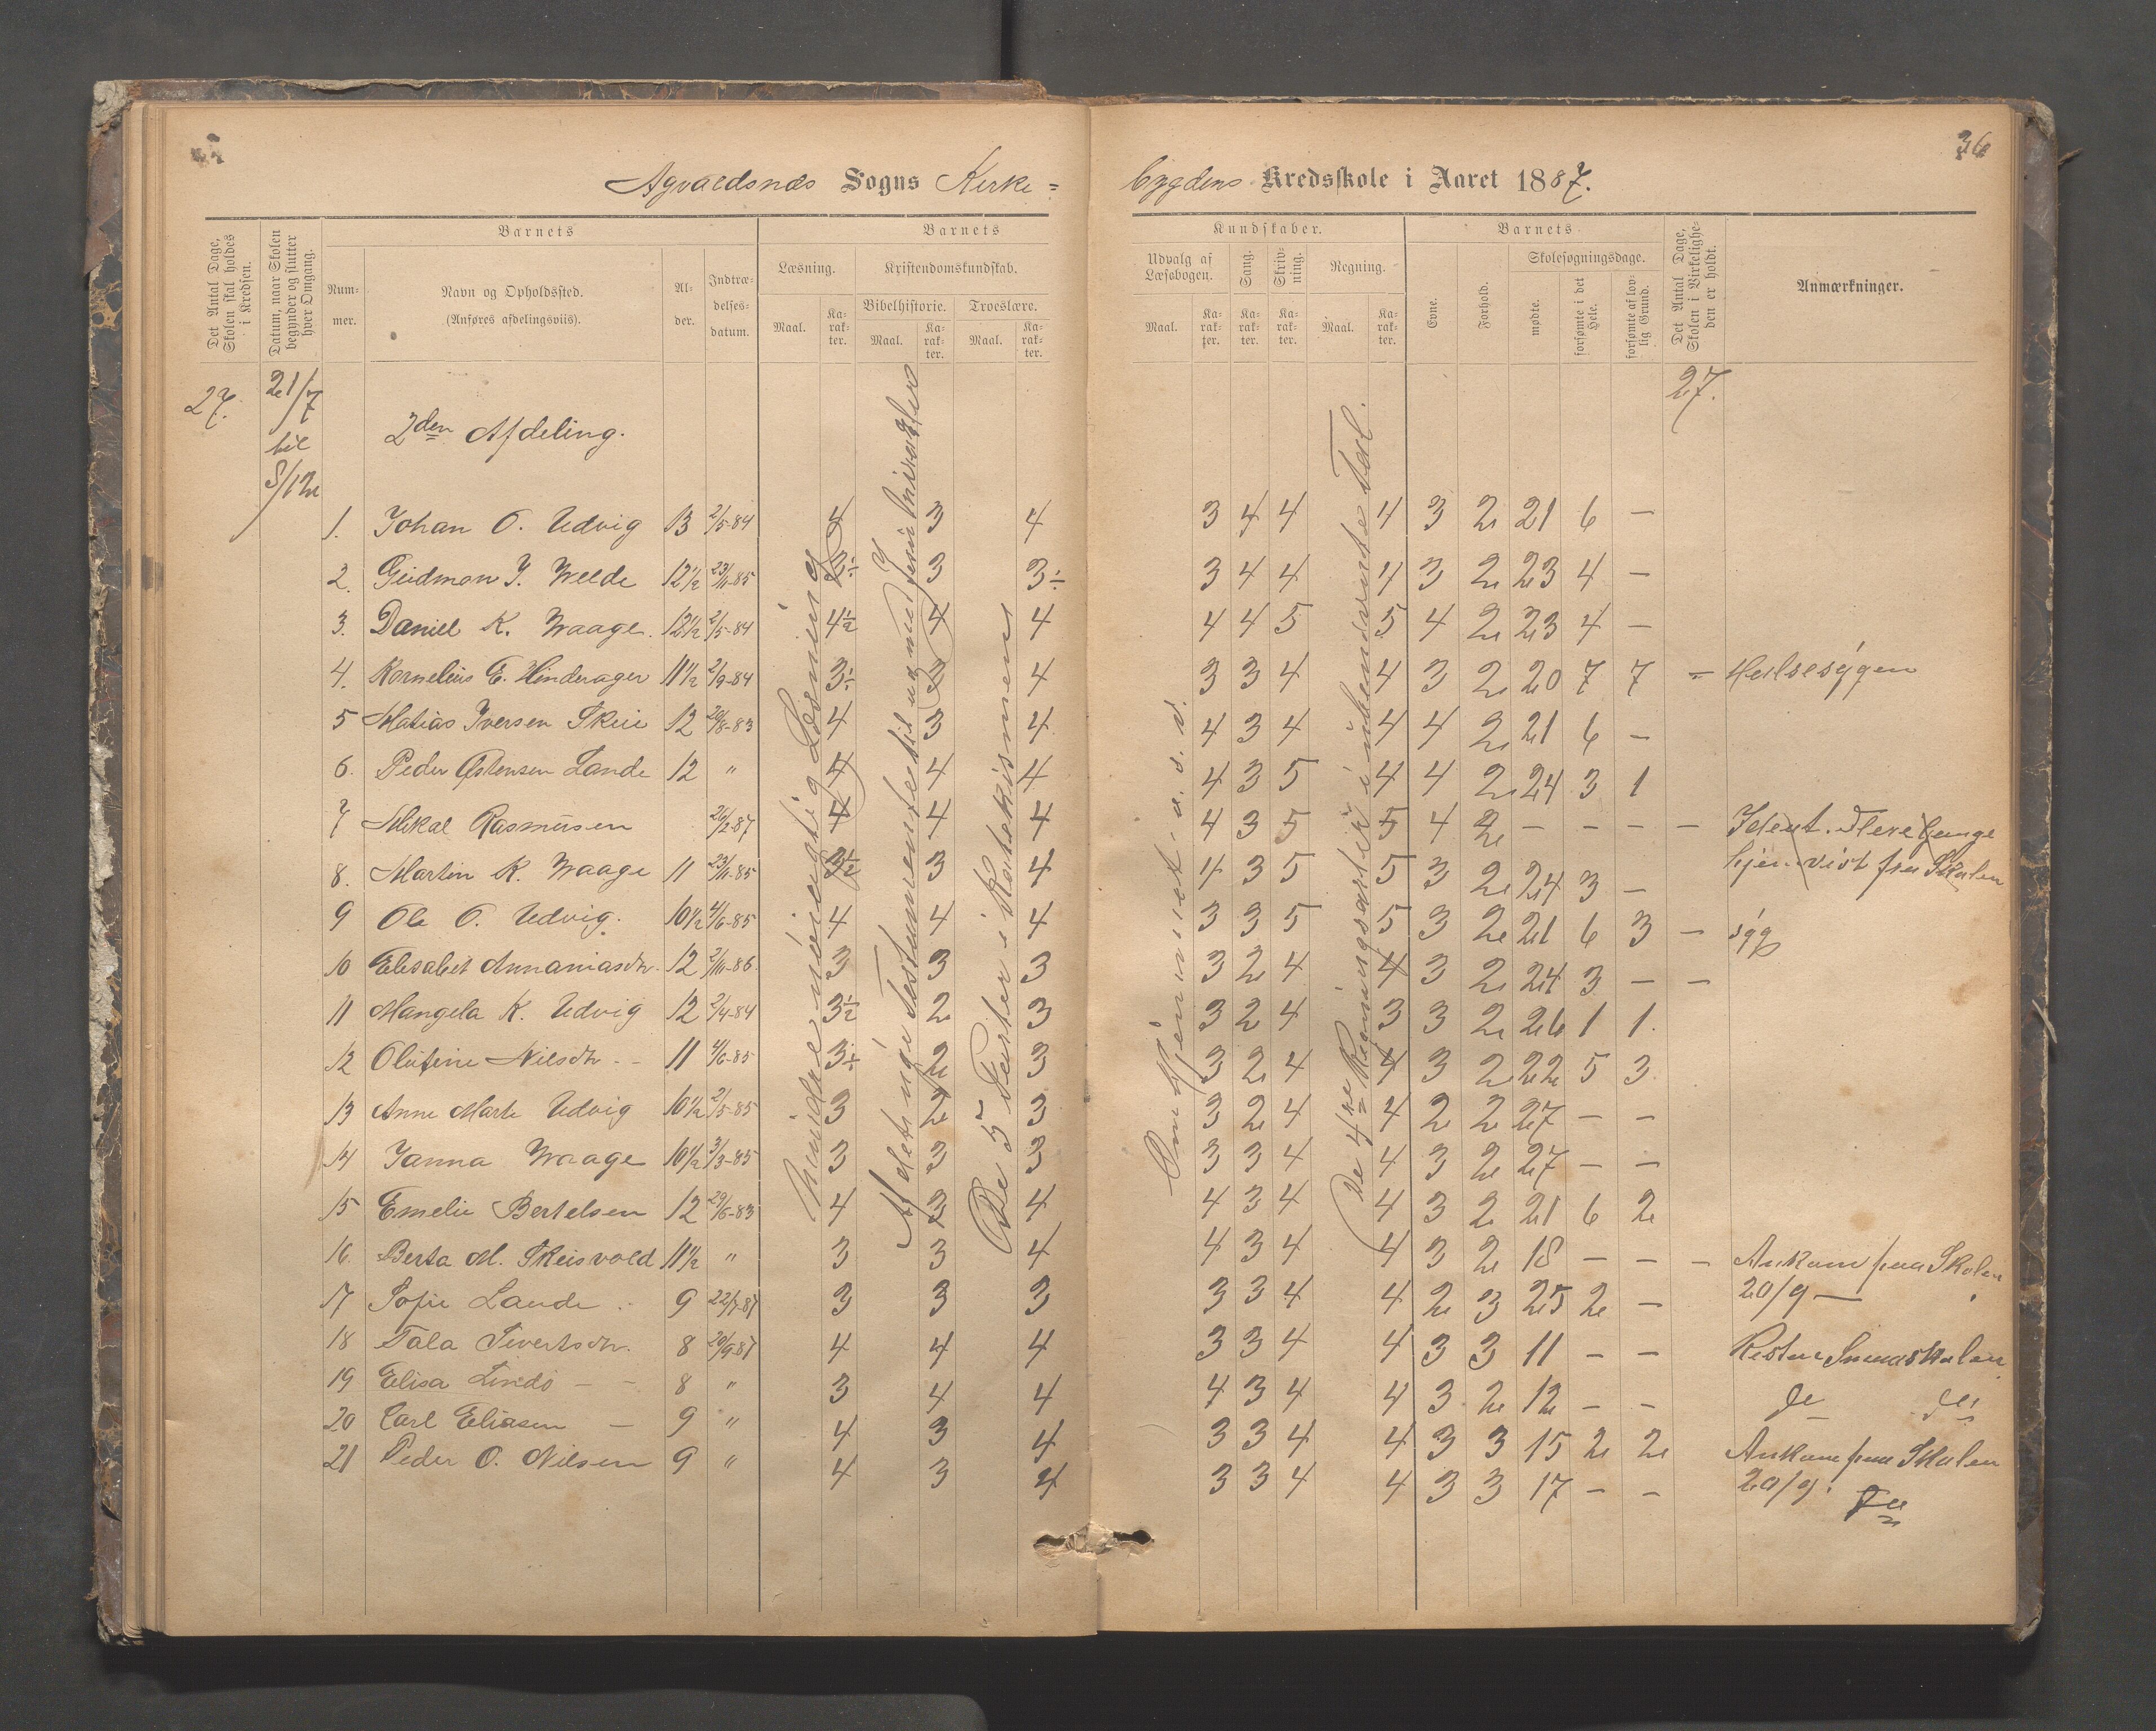 36
Agvaldsnæs Sogns Kirke=
bygdens Kredsskole i Aaret 1887.
Det Antal Dage, Skolen skal holdes i Kredsen.
Datum, naar Skolen begynder og slutter hver Omgang.
Barnets
Nummer.
Navn og Opholdssted.
(Anføres afdelingsviis).
Alder.
Indtrædelsesdatum.
Barnets
Læsning.
Maal.
Karakter.
Kristendomskundskab.
Bibelhistorie.
Maal.
Karakter.
Troeslære.
Maal.
Karakter.
Kundskaber.
Udvalg af Læsebogen.
Maal.
Karakter.
Sang.
Karakter.
Skrivning.
Karakter.
Regning.
Maal.
Karakter.
Barnets
Evne.
Forhold.
Skolesøgningsdage.
mødte.
forsømte i det Hele.
forsømte af lovlig Grund.
Det Antal Dage, Skolen i Virkeligheden er holdt.
Anmærkninger.
27. 21/7 til 8/12 27.
2den Afdeling.
Mindre nøiagtig Læsning
Af det nye Testamente til og med Jesu Mirakler
De 5 Parter i Katekismen
Om Hjemmet o. s. v.
De 4re Regningsarter i ubenævnte Tal.
1. Johan O. Udvig 13 2/5-84 4 3 4 3 4 4 4 3 2 21 6 —
2. Gudmon J. Welde 12½ 23/11-85 3÷ 3 3÷ 3 4 4 4 3 2 23 4 —
3. Daniel K. Waage. 12½ 2/5-84 4½ 4 4 4 4 5 5 4 2 23 4 —
4. Kornelius E. Hinderager 11½ 2/9-84 3÷ 3 4 3 3 4 4 3 2 20 7 7 — Helsesygen
5 Matias Iversen Skeie 12 20/8-83 4 3 4 4 3 4 4 4 2 21 6 —
6. Peder Østensen Lande 12 " 4 4 4 4 3 5 4 4 2 24 3 1
7 Mikal Rasmusen 26/2-87 4 4 4 4 3 5 5 4 2 — — — — Ident. Flere Gange
hjemvist fra Skolen
8. Martin K. Waage 11 23/11-85 3½ 3 4 4 3 5 5 3 2 24 3 —
9 Ole O. Udvig. 10½ 4/6-85 4 4 4 3 3 5 5 3 2 21 6 3 — syg
10 Elisabet Annaniasdtr. 12 2/10-86. 3 3 3 3 2 4 4 3 2 24 3 — —
11 Mangela K. Udvig 12 2/4-84 3½ 2 3 3 2 4 3 3 2 26 1 1.
12 Olufine Nilsdtr - - 11 4/6-85 3÷ 2 3 3 2 4 4 3 2 22 5 3
13 Anne Marte Udvig 10½ 2/5-85 3 2 3 3 2 4 4 2 2 27 — —
14 Janna Waage 10½ 3/3-85 3 3 3 3 3 4 4 3 2 27 — —
15 Emelie Bertelsen 12 29/6-83 4 3 4 4 3 4 4 3 2 21 6 2
16. Berta M. Skeisvold 11½ " 3 3 4 4 3 4 4 3 2 18 — — — Ankom paa Skolen
20/9 —
17 Sofie Lande . 9 22/7-87 3 3 3 3 3 4 4 2 3 25 2 —
18 Tala Sivertsdtr. 8 20/9-87 4 4 4 3 3 4 4 3 3 11 — — Resten Smaaskolen
19 Elisa Lindø — - 8 " 3 4 4 4 3 4 4 3 2 12 — — do do
20 Carl Eliasen — 9 " 4 3 4 3 3 4 4 3 3 15 2 2 Ankom paa Skolen
20/9.
21 Peder O. Nilsen 9 " 4 3 4 3 3 4 4 3 3 17 — —